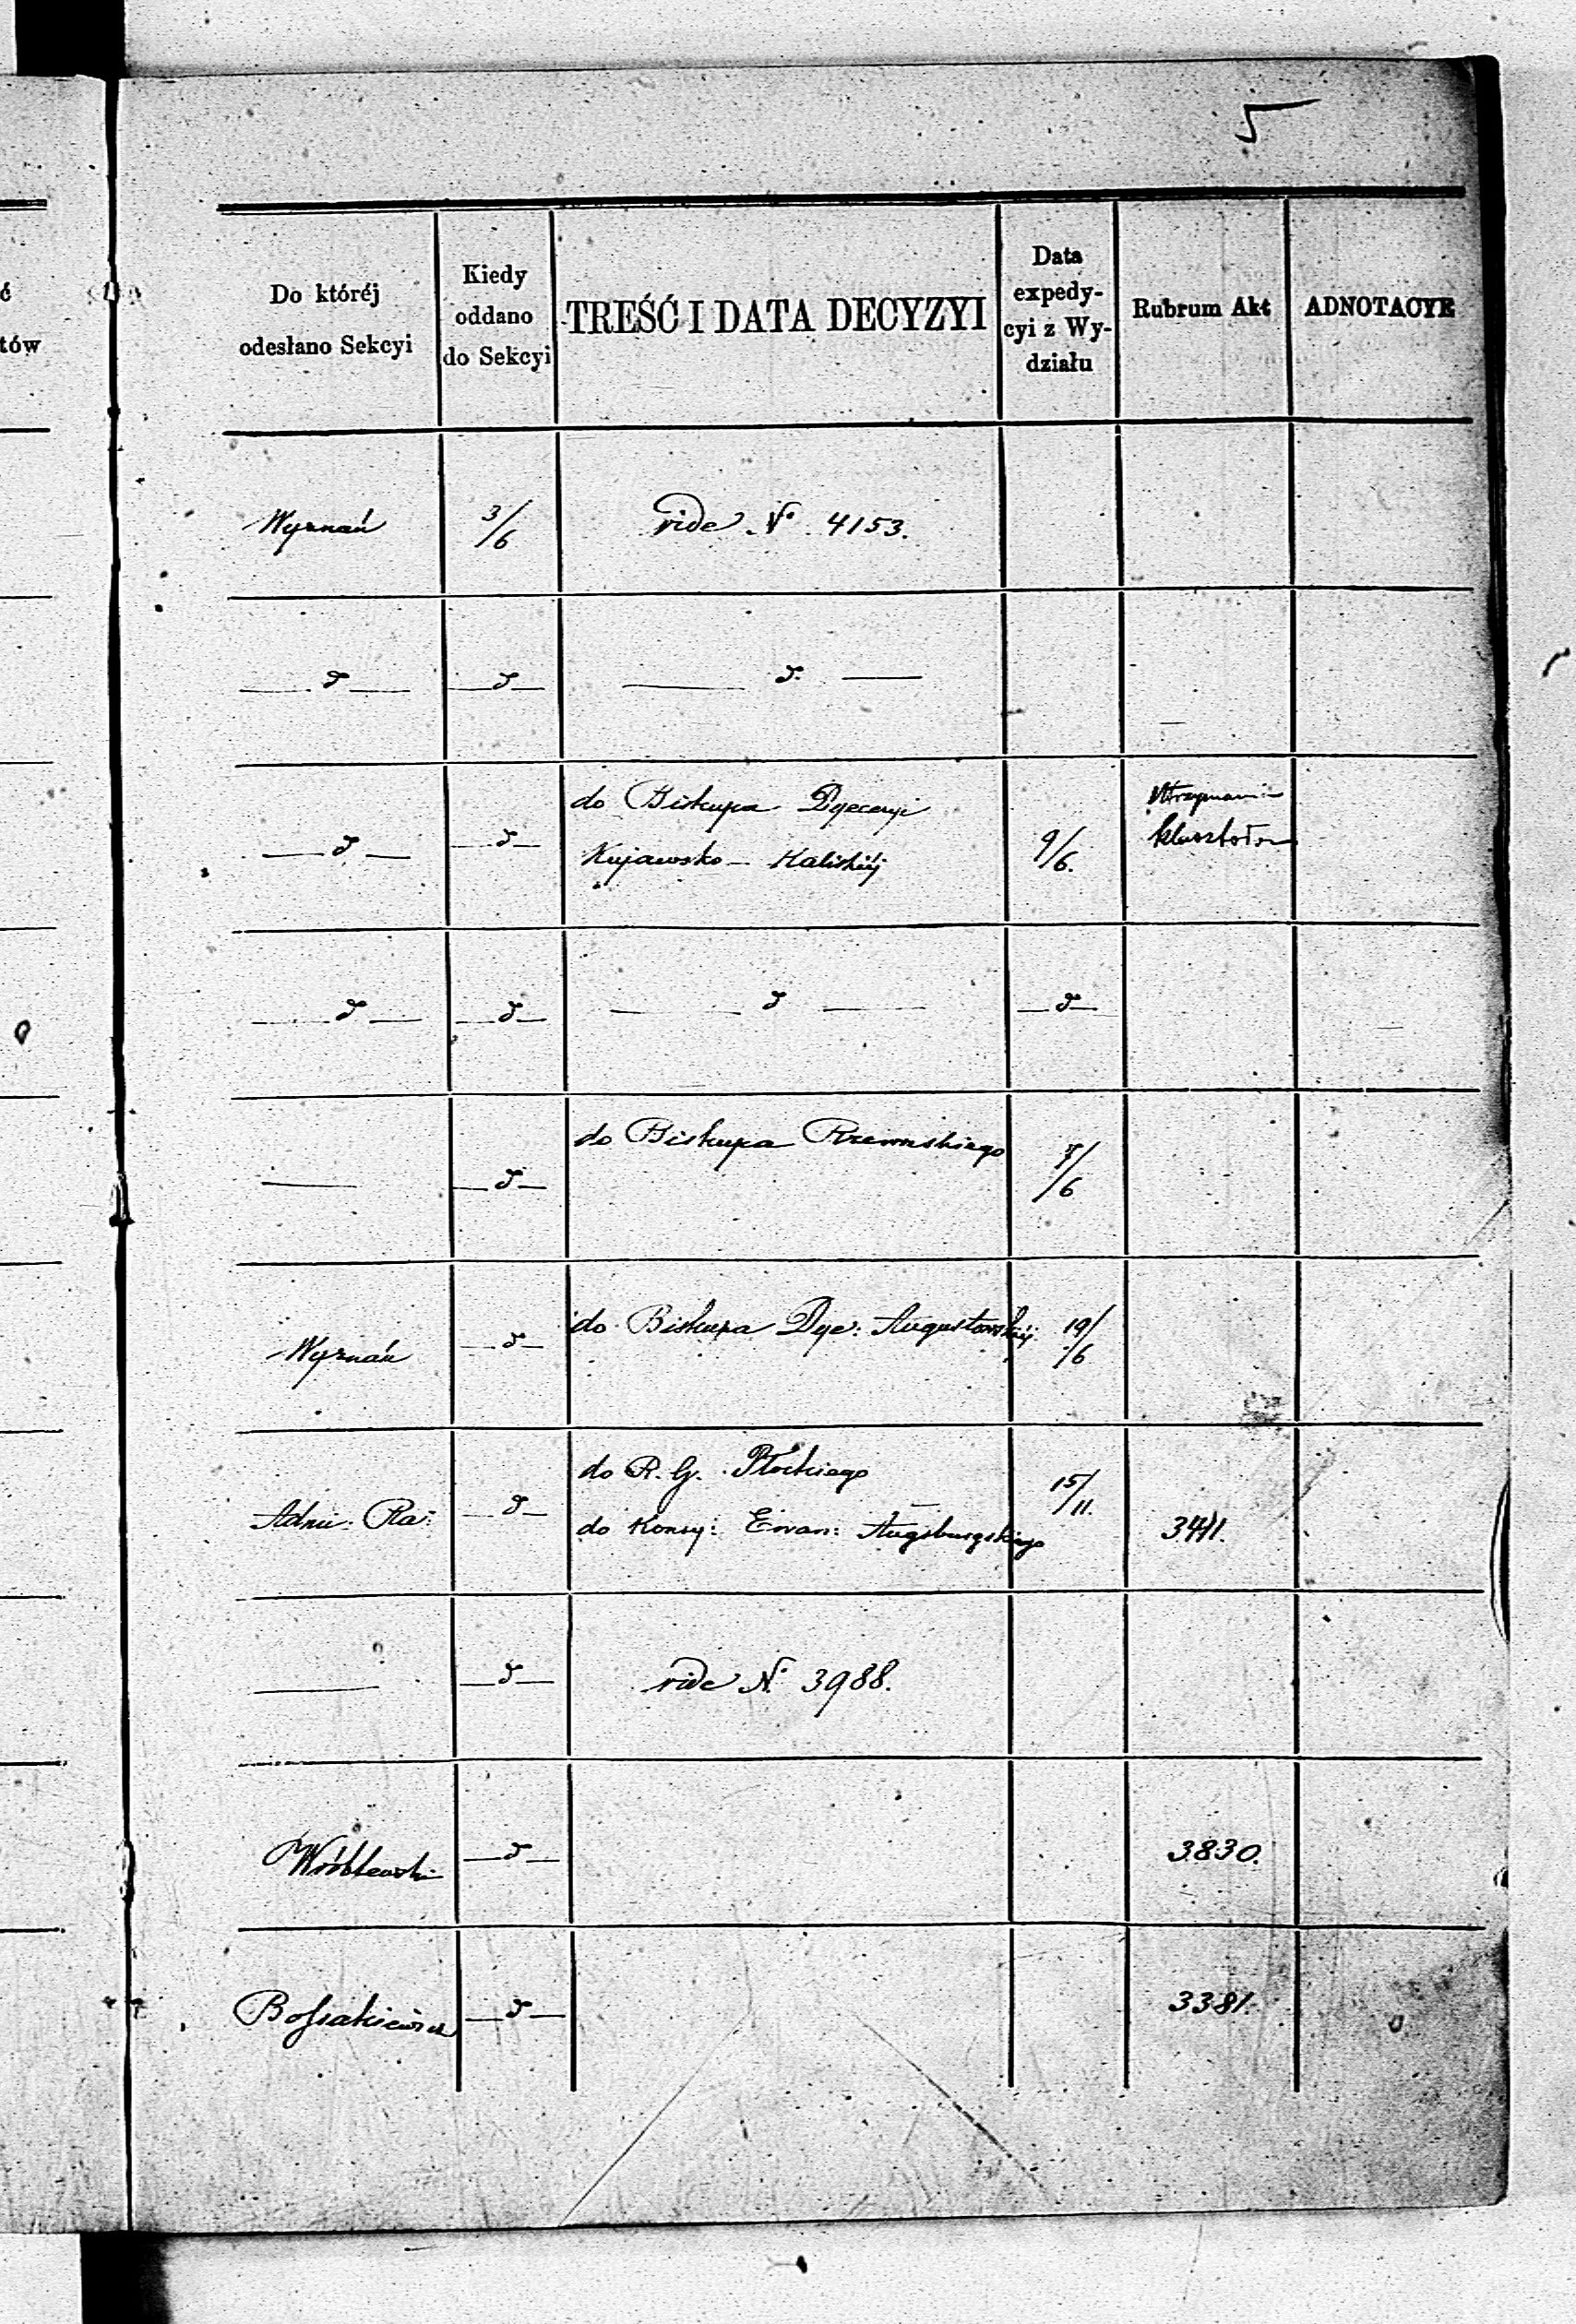 5
Do któréj
odesłano Sekcyi
Kiedy
oddano
do Sekcyi
TREŚĆ I DATA DECYZYI
Data
expedy-
cyi z Wy-
działu
Rubrum Akt
ADNOTACYE
ć
tów
Wyznań 3/6 vide N° 4153.
— d — — d — — d. —
do Biskupa Dyecezyi
Kujawsko - Kaliskiéj
— d — — d — 9/6.
Utrzymanie
klasztorów
— d — — d — — d — — d —
do Biskupa Rzewuskiego
— — d — /6
Wyznań — d — do Biskupa Dye: Augustowskiéj 19/6
do R. G. Płockiego
Adm: Ra: — d — do Konsy: Ewan: Augsburgskiego 15/11. 3411.
— — d — vide N. 3988.
Wróblewski — d — 3830.
Bossakiewicz — d — 3381.